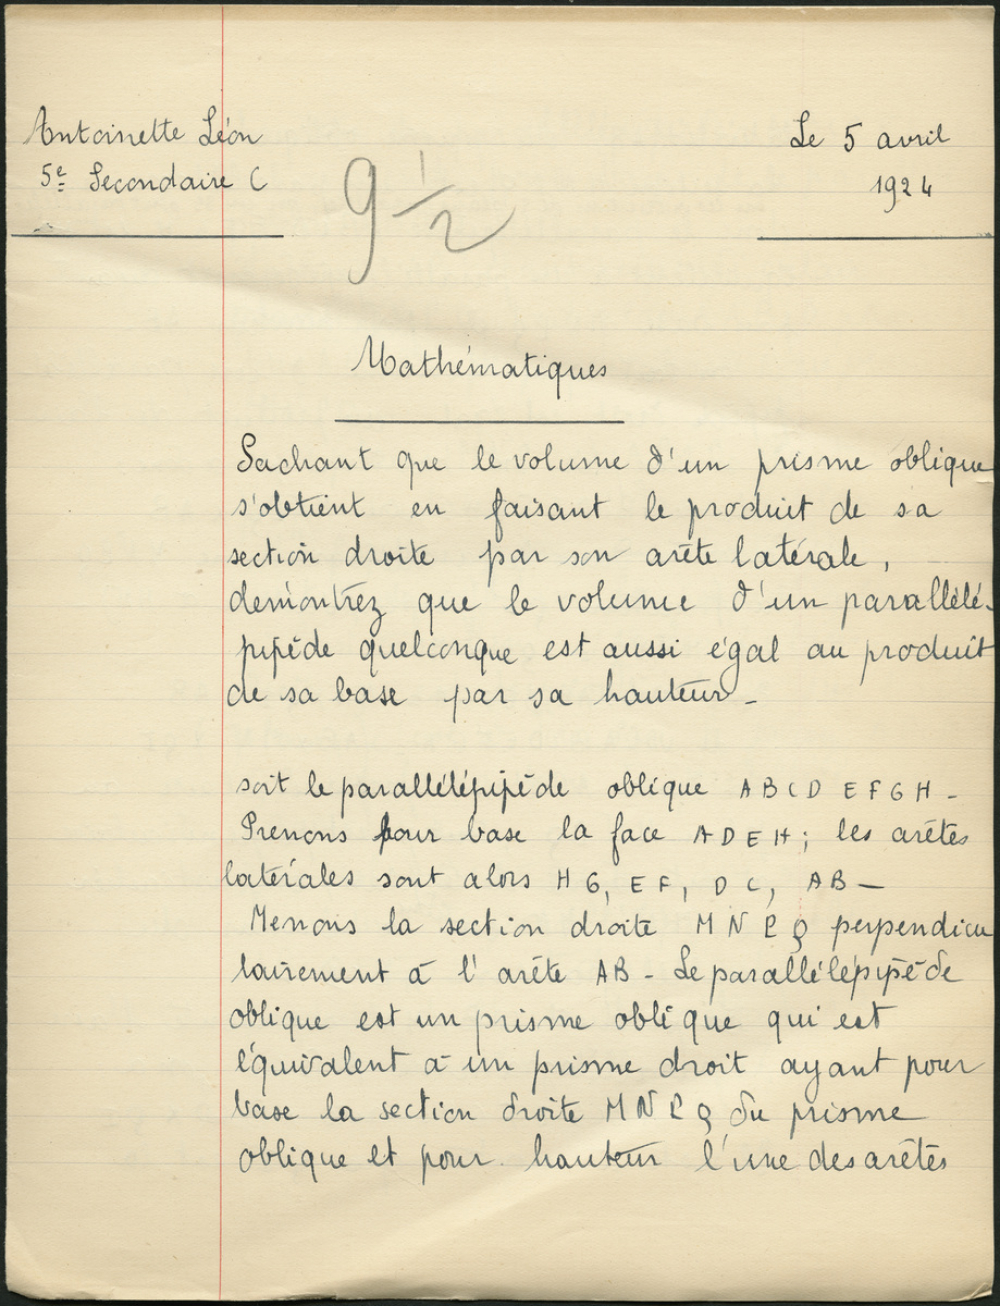 Antoinette Léon
5e Secondaire C
Le 5 avril
1924
9 1/2
Mathématiques
Sachant que le volume d'un prisme oblique
s'obtient en faisant le produit de sa
section droite par son arête latérale,
demontrez que le volume d'un parallélé-
pipède quelconque est aussi égal au produit
de sa base par sa hauteur -
soit le parallélépipède oblique ABCD EFGH -
Prenons pour base la face ADEH; les arêtes
latérales sont alors HG, EF, DC, AB -
Menons la section droite MNPQ perpendicu
lairement à l'arête AB - Le parallélépipède
oblique est un prisme oblique qui est
équivalent à un prisme droit ayant pour
base la section droite MNPQ du prisme
oblique et pour hauteur l'une des arêtes